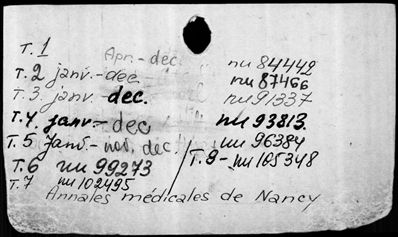 T.1 Apr.-dec. nu 84442
T.2 janv.-dec. nu 87466
T.3 janv. dec. nu 91337
T.4 janv- dec nu 93813.
T.5 Janv.- nov. dec. nu 96384
T.6 nu 99273 / T.9- nu 105348
T.7 nu 102495
Annales médicales de Nancy